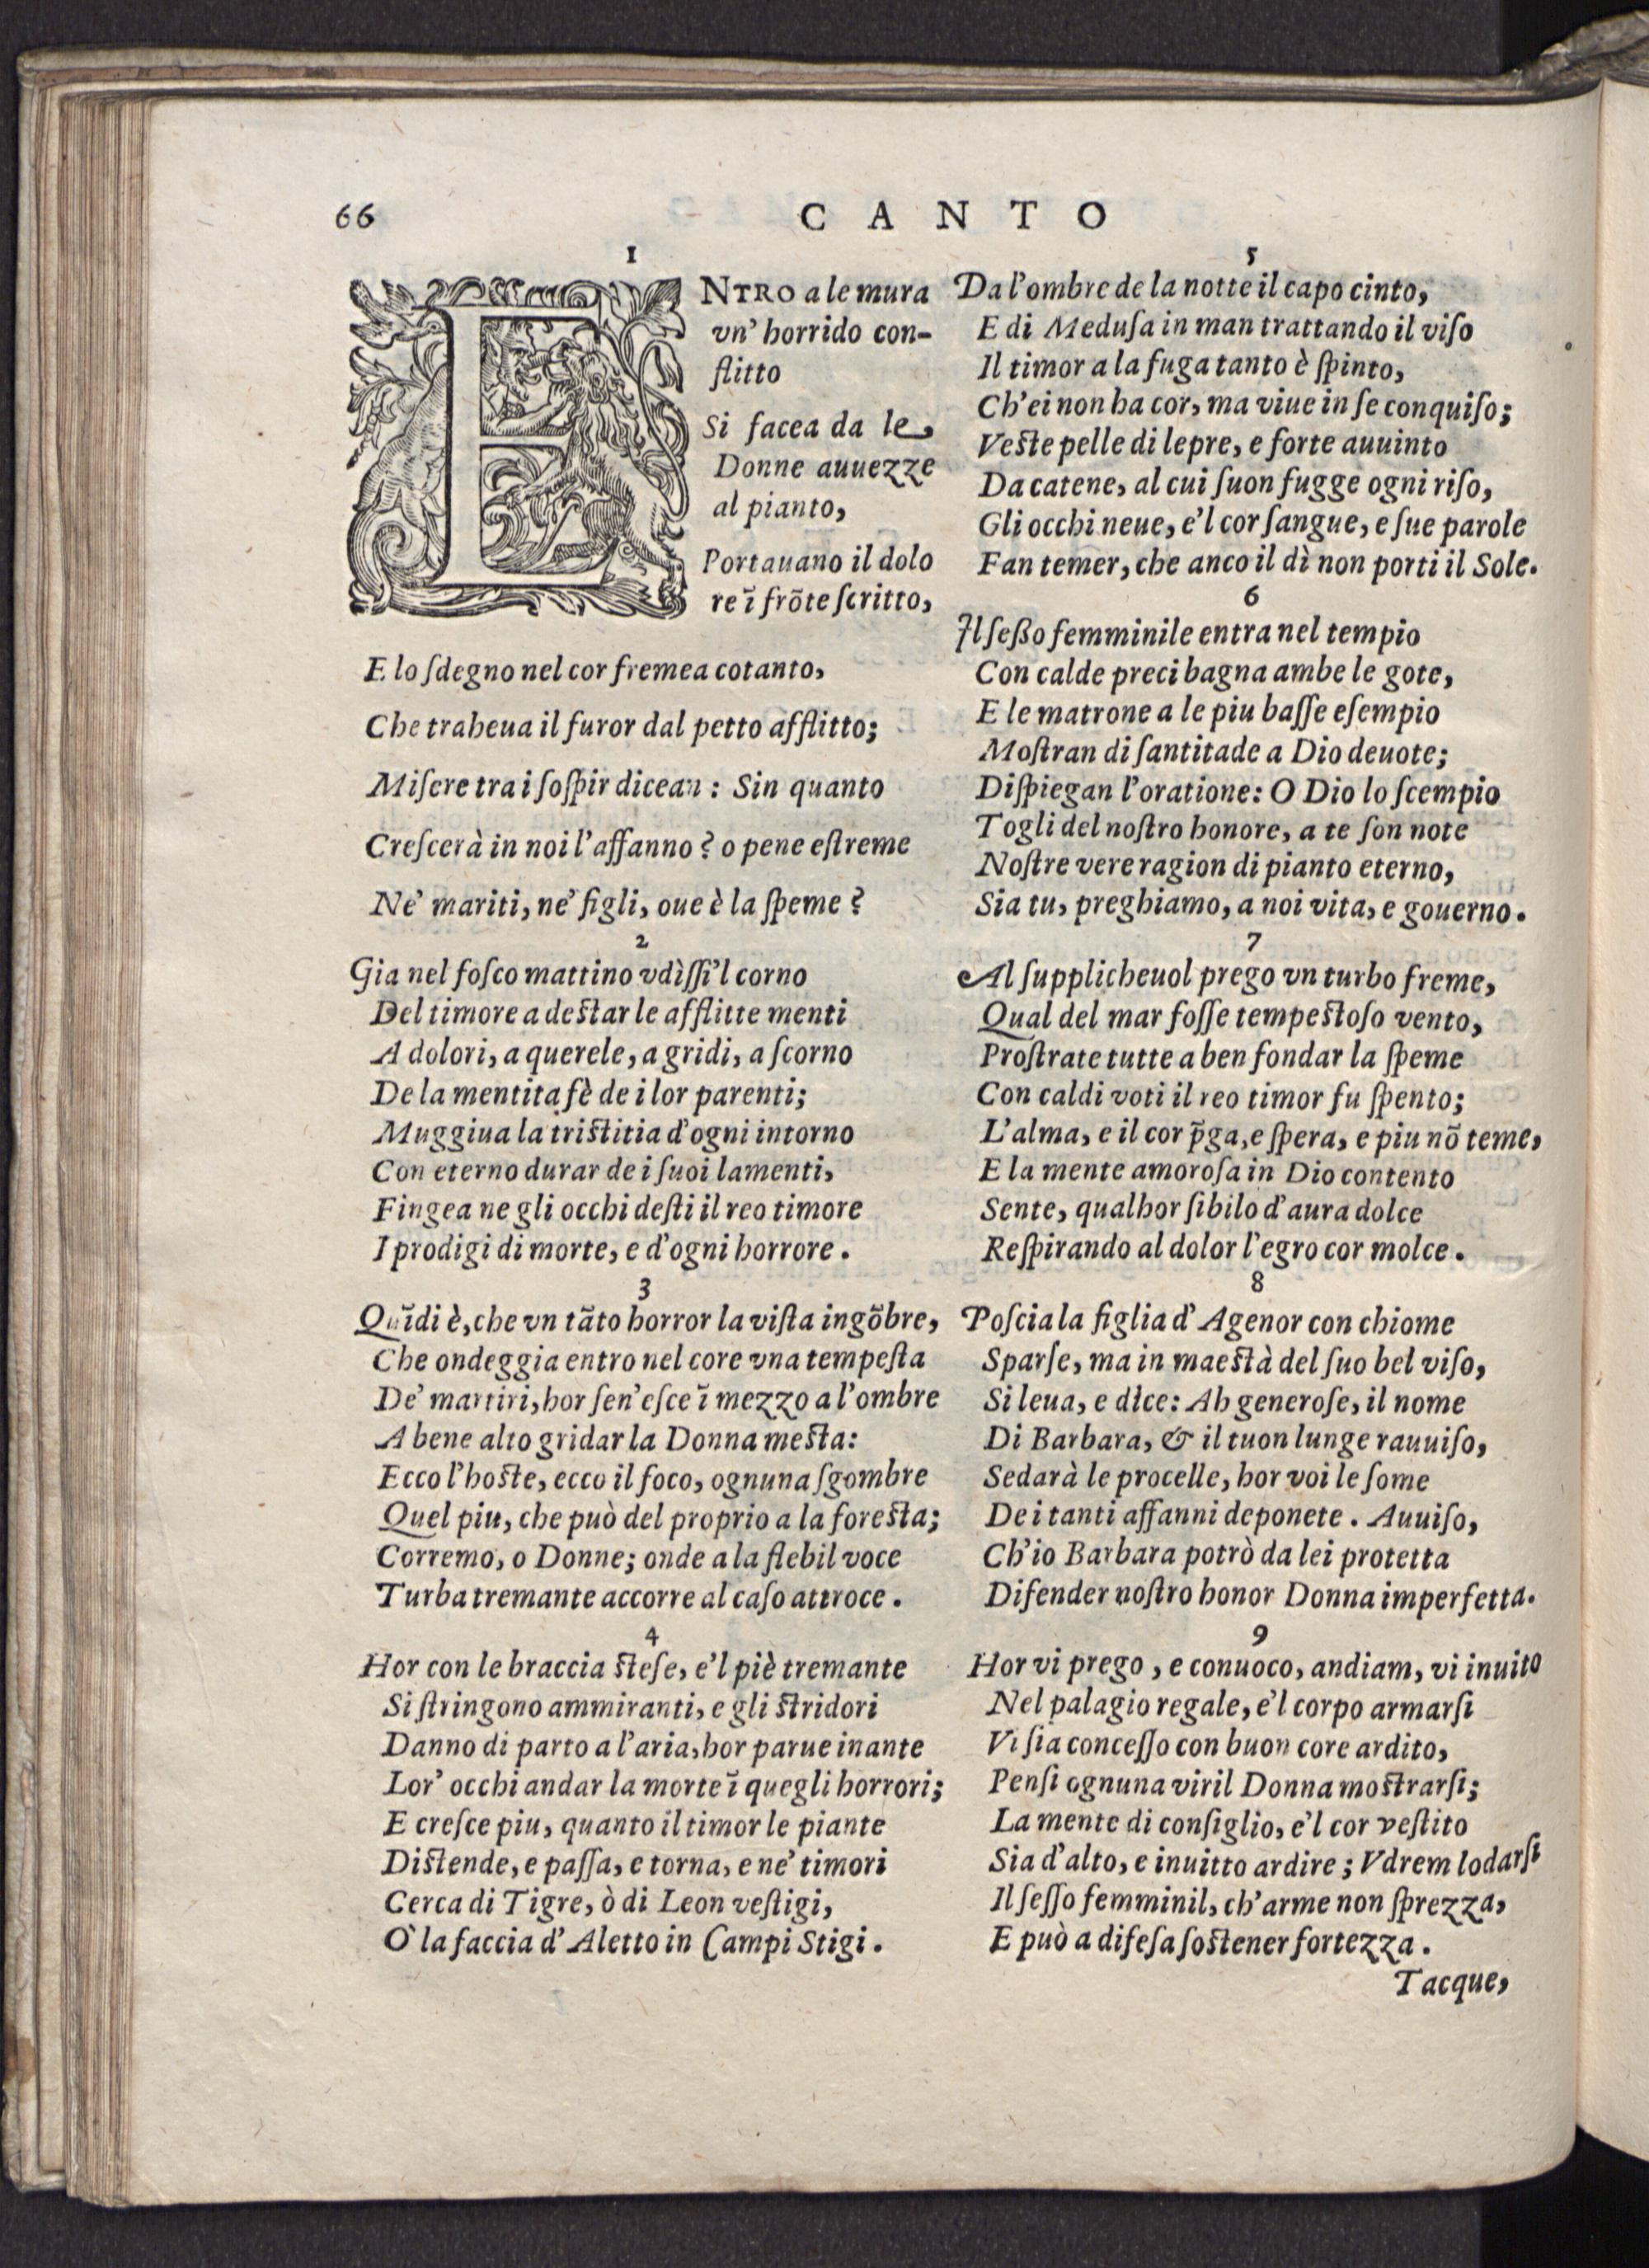 66
CANTO
1
ENTRO a le mura
vn' horrido con-
flitto
Si facea da le
Donne auuezze
al pianto,
Portauano il dolo
re ĩ frõte ſcritto,
E lo ſdegno nel cor fremea cotanto,
Che traheua il furor dal petto afflitto;
Miſere tra i ſoſpir dicean: Sin quanto
Creſcerà in noi l'affanno? o pene eſtreme
Ne' mariti, ne' figli, oue è la ſpeme?
2
Gia nel foſco mattino vdìſſi'l corno
Del timore a deſtar le afflitte menti
A dolori, a querele, a gridi, a ſcorno
De la mentita fè de i lor parenti;
Muggiua la triſtitia d'ogni intorno
Con eterno durar de i ſuoi lamenti,
Fingea ne gli occhi deſti il reo timore
I prodigi di morte, e d'ogni horrore.
3
Quĩdi è, che vn tãto horror la viſta ingõbre,
Che ondeggia entro nel core vna tempeſta
De' martiri, hor ſen'eſce ĩ mezzo a l'ombre
A bene alto gridar la Donna meſta:
Ecco l'hoſte, ecco il foco, ognuna ſgombre
Quel piu, che può del proprio a la foreſta;
Corremo, o Donne; onde a la flebil voce
Turba tremante accorre al caſo attroce.
4
Hor con le braccia ſteſe, e'l piè tremante
Si ſtringono ammiranti, e gli ſtridori
Danno di parto a l'aria, hor parue inante
Lor' occhi andar la morte ĩ quegli horrori;
E creſce piu, quanto il timor le piante
Diſtende, e paſſa, e torna, e ne' timori
Cerca di Tigre, ò di Leon veſtigi,
O' la faccia d'Aletto in Campi Stigi.
5
Da l'ombre de la notte il capo cinto,
E di Meduſa in man trattando il viſo
Il timor a la fuga tanto è ſpinto,
Ch'ei non ha cor, ma viue in ſe conquiſo;
Veſte pelle di lepre, e forte auuinto
Da catene, al cui ſuon fugge ogni riſo,
Gli occhi neue, e'l cor ſangue, e ſue parole
Fan temer, che anco il dì non porti il Sole.
6
Il ſeßo femminile entra nel tempio
Con calde preci bagna ambe le gote,
E le matrone a le piu baſſe eſempio
Moſtran di ſantitade a Dio deuote;
Diſpiegan l'oratione: O Dio lo ſcempio
Togli del noſtro honore, a te ſon note
Noſtre vere ragion di pianto eterno,
Sia tu, preghiamo, a noi vita, e gouerno.
7
Al ſupplicheuol prego vn turbo freme,
Qual del mar foſſe tempeſtoſo vento,
Proſtrate tutte a ben fondar la ſpeme
Con caldi voti il reo timor fu ſpento;
L'alma, e il cor p̃ga, e ſpera, e piu nõ teme,
E la mente amoroſa in Dio contento
Sente, qualhor ſibilo d'aura dolce
Reſpirando al dolor l'egro cor molce.
8
Poſcia la figlia d'Agenor con chiome
Sparſe, ma in maeſtà del ſuo bel viſo,
Si leua, e dice: Ah generoſe, il nome
Di Barbara, & il tuon lunge rauuiſo,
Sedarà le procelle, hor voi le ſome
De i tanti affanni deponete. Auuiſo,
Ch'io Barbara potrò da lei protetta
Difender noſtro honor Donna imperfetta.
9
Hor vi prego, e conuoco, andiam, vi inuito
Nel palagio regale, e'l corpo armarſi
Vi ſia conceſſo con buon core ardito,
Penſi ognuna viril Donna moſtrarſi;
La mente di conſiglio, e'l cor veſtito
Sia d'alto, e inuitto ardire; Vdrem lodarſi
Il ſeſſo femminil, ch'arme non ſprezza,
E può a difeſa ſoſtener fortezza.
Tacque,